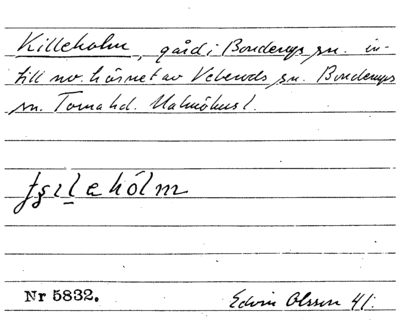 Killeholm, gård i Bonderups sn. in-
till nv. hörnet av Veberöds sn. Bonderups
sn. Torna hd. Malmöhus l.
Nr 5832.
Edvin Olsson 41.